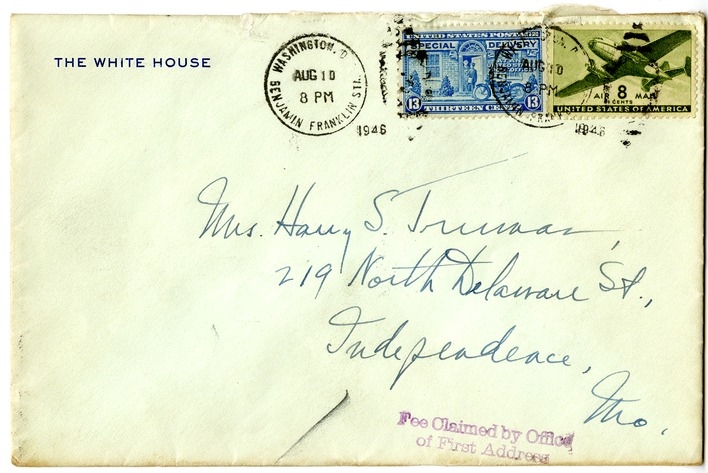 THE WHITE HOUSE
WASHINGTON, D
AUG 10
8 PM
BENJAMIN FRANKLIN STA.
1946
UNITED STATES POSTAGE
SPECIAL DELIVERY
13 THIRTEEN CENTS 13
WASHINGTON, D
AUG 10
8 PM
1946
AIR 8 MAIL
CENTS
UNITED STATES OF AMERICA
Mrs. Harry S. Truman,
219 North Delaware St.,
Independence,
Mo.
Fee Claimed by Office
of First Address